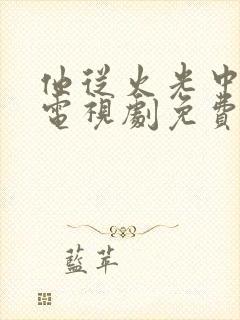 他從火光中
電視劇免費
藍苹